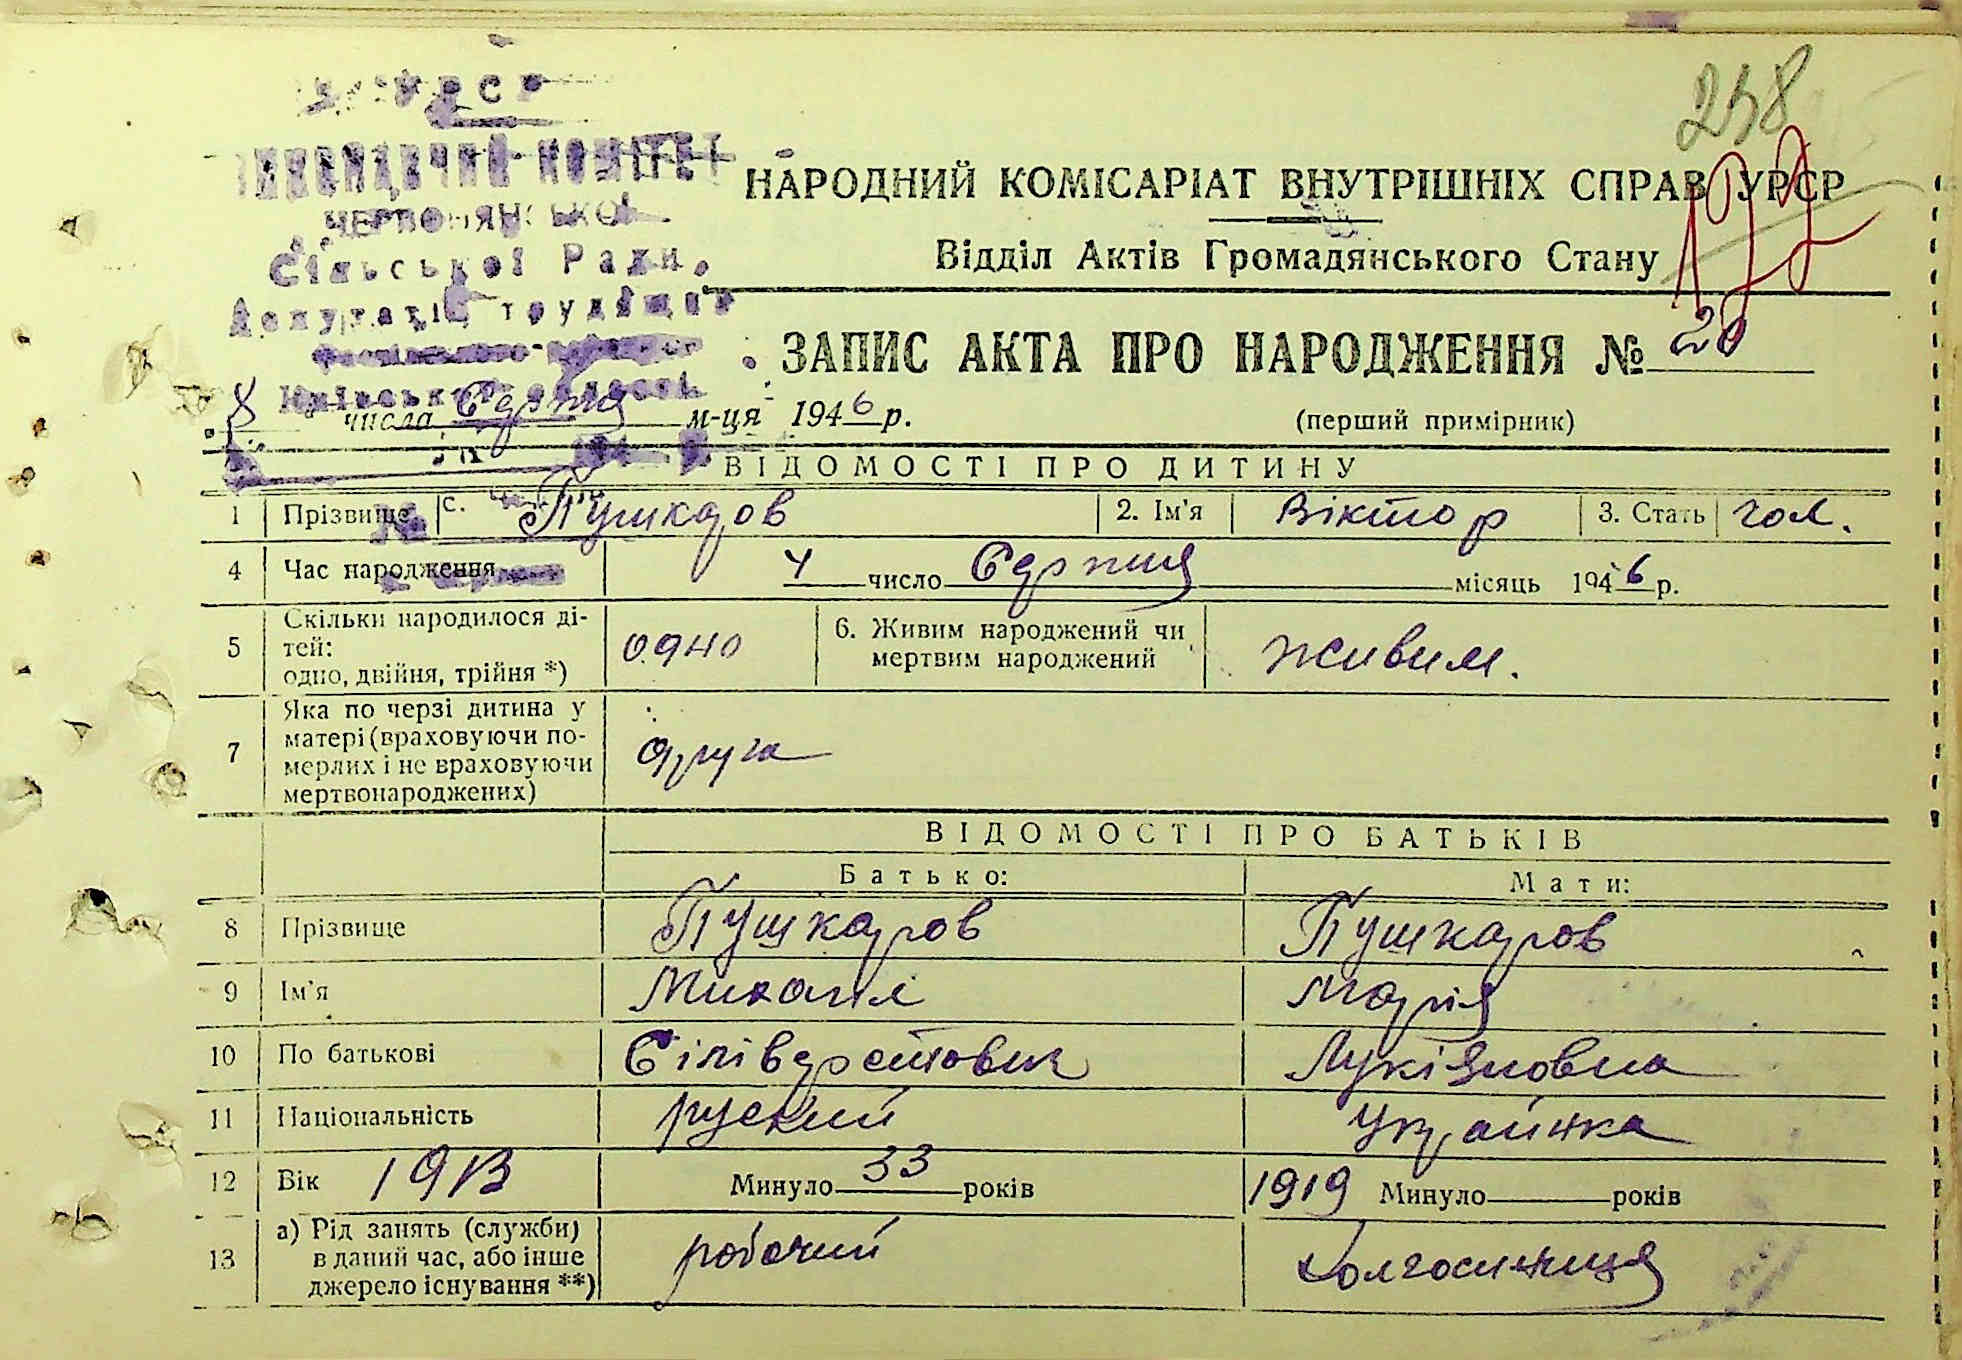 УРСР
ВИКОНАВЧИЙ КОМІТЕТ
ЧЕРВОНЯНСЬКОЇ
Сільської Ради
Депутатів трудящих
Київської області
238
НАРОДНИЙ КОМІСАРІАТ ВНУТРІШНІХ СПРАВ УРСР
Відділ Актів Громадянського Стану
ЗАПИС АКТА ПРО НАРОДЖЕННЯ № 20
8 числа Серпня м-ця 1946 р.
(перший примірник)
ВІДОМОСТІ ПРО ДИТИНУ
1 Прізвище Пушкаров 2. Ім'я Віктор 3. Стать чол.
4 Час народження 4 число Серпня місяць 1946 р.
5 Скільки народилося ді-
тей:
одно, двійня, трійня *) одно 6. Живим народжений чи
мертвим народжений живим.
7 Яка по черзі дитина у
матері (враховуючи по-
мерлих і не враховуючи
мертвонароджених) друга
ВІДОМОСТІ ПРО БАТЬКІВ
Батько: Мати:
8 Прізвище Пушкаров Пушкаров
9 Ім'я Михаил Марія
10 По батькові Сіліверстович Лукіяновна
11 Національність руский Українка
12 Вік 1913 Минуло 33 років 1919 Минуло років
13 а) Рід занять (служби)
в даний час, або інше
джерело існування **) робочий колгоспниця